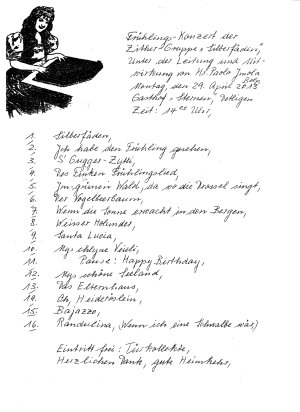 Frühlings-Konzert der
Zither-Gruppe "Silberfäden,"
Unter der Leitung und Mit-
wirkung von H. Paolo Imola
Montag, den 29. April 2013
Gasthof-Sternen,
Zeit: 14 00 Uhr,
1. Silberfäden,
2. Ich habe den Frühling gesehen,
3. S'Gugger-Zytli,
4. Des Finken Frühlingslied,
5. Im grünen Wald, da wo die Drossel singt,
6. Der Vogelbeerbaum,
7. Wenn die Sonne erwacht in den Bergen,
8. Weisser Holunder,
9. Santa Lucia,
10. Mys chlyne Veieli,
11. Pause: Happy Birthday,
12. Mys schöne Seeland,
13. Das Elternhaus,
14. Oh, Heideröslein,
15. Bajazzo,
16. Rondulina, (Wenn ich eine Schwalbe wär)
Eintritt frei: Türkollekte,
Herzlichen Dank, gute Heimkehr,